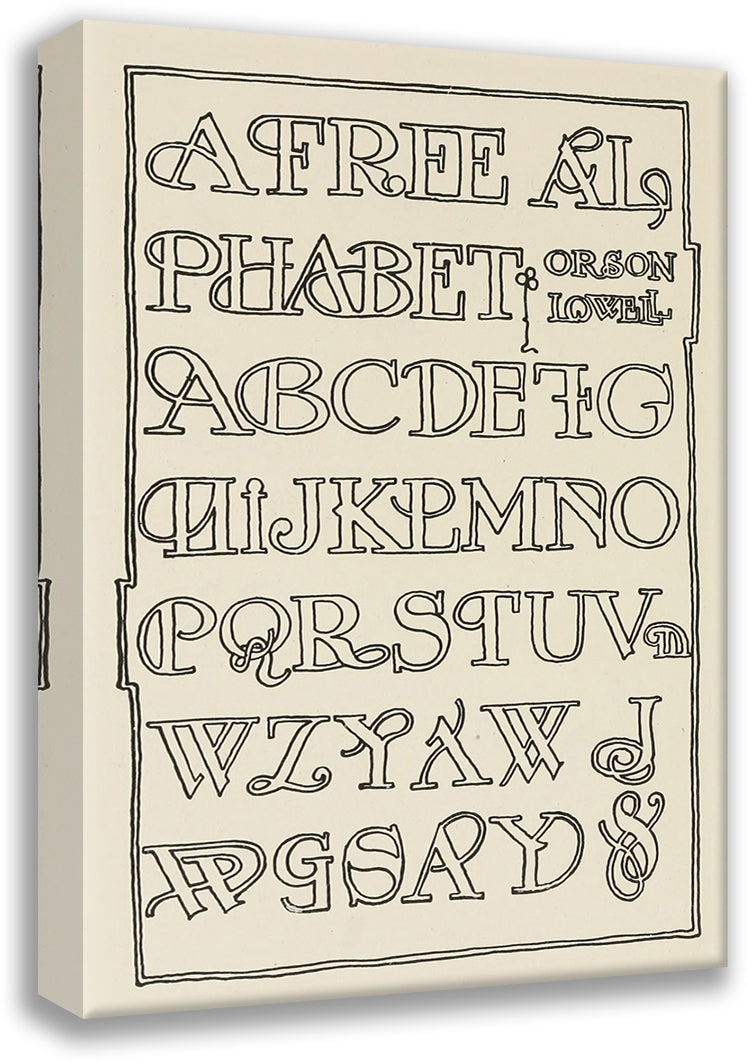 A FREE AL,
PHABET
ORSON
LOWELL
ABCDEFG
HIJKLMNO
PQRSTUVm
WZYXW J
PGSAYD &